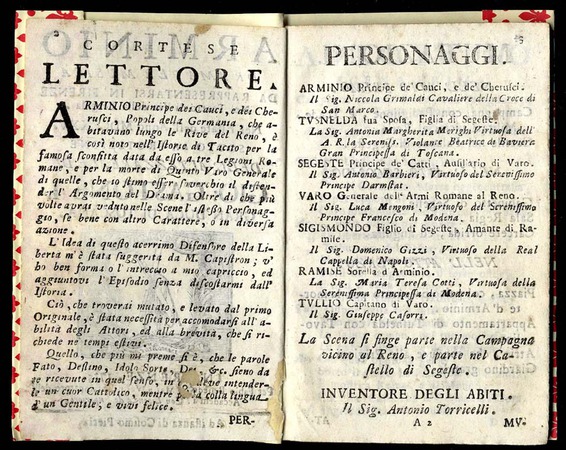 2
CORTESE
LETTORE.
ARMINIO Principe dei Cauci, e dei Che-
rusci, Popoli della Germania, che a-
bitavano lungo le Rive del Reno, è
così noto nell'Istorie di Tacito per la
famosa sconfitta data da esso a tre Legioni Ro-
mane, e per la morte di Quinto Varo Generale
di quelle, che io stimo esser soverchio il discen-
der l'Argomento del Drama. Oltre di che più
volte avrai veduto nelle Scene l'istesso Personag-
gio, se bene con altro Carattere, o in diversa
azione.
L'Idea di questo acerrimo Difensore della Li-
berta m'è stata suggerita da M. Capistron; v'
ho ben forma o l'intreccio a mio capriccio, ed
aggiuntovi l'Episodio senza discostarmi dall'
Istoria.
Ciò, che troverai mutato, e levato dal primo
Originale, è stata necessità per accomodarsi all'a-
bilità degli Attori, ed alla brevità, che si ri-
chiede ne tempi estivi.
Quello, che più mi preme si è, che le parole
Fato, Destino, Idolo Sorte, &c. sieno da
te ricevute in quel senso, in deve intender-
le un cuor Cattolico, mentre colla lingua
d'un Gentile; e vivi felice.
PER-
3
PERSONAGGI.
ARMINIO Principe de' Cauci, e de' Cherusci.
Il Sig. Niccola Grimaldi Cavaliere della Croce di
San Marco.
TVSNELDA sua Sposa, Figlia di Segeste.
La Sig. Antonia Margherita Merighi Virtuosa dell'
A.R. la Sereniss. Violante Beatrice di Baviera
Gran Principessa di Toscana.
SEGESTE Principe de' Catti, Ausiliario di Varo.
Il Sig. Antonio Barbieri, Virtuoso del Serenissimo
Principe Darmstat.
VARO Generale dell'Armi Romane al Reno.
Il Sig. Luca Mengoni, Virtuoso del Serenissimo
Principe Francesco di Modena.
SIGISMONDO Figlio di Segeste, Amante di Ra-
mise.
Il Sig. Domenico Gizzi, Virtuoso della Real
Cappella di Napoli.
RAMISE Sorella d'Arminio.
La Sig. Maria Teresa Cotti, Virtuosa della
Serenissima Principessa di Modena.
TVLLIO Capitano di Varo.
Il Sig. Giuseppe Casorri.
La Scena si finge parte nella Campagna
vicino al Reno, e parte nel Ca-
stello di Segeste.
INVENTORE DEGLI ABITI.
Il Sig. Antonio Torricelli.
A 2
MV-